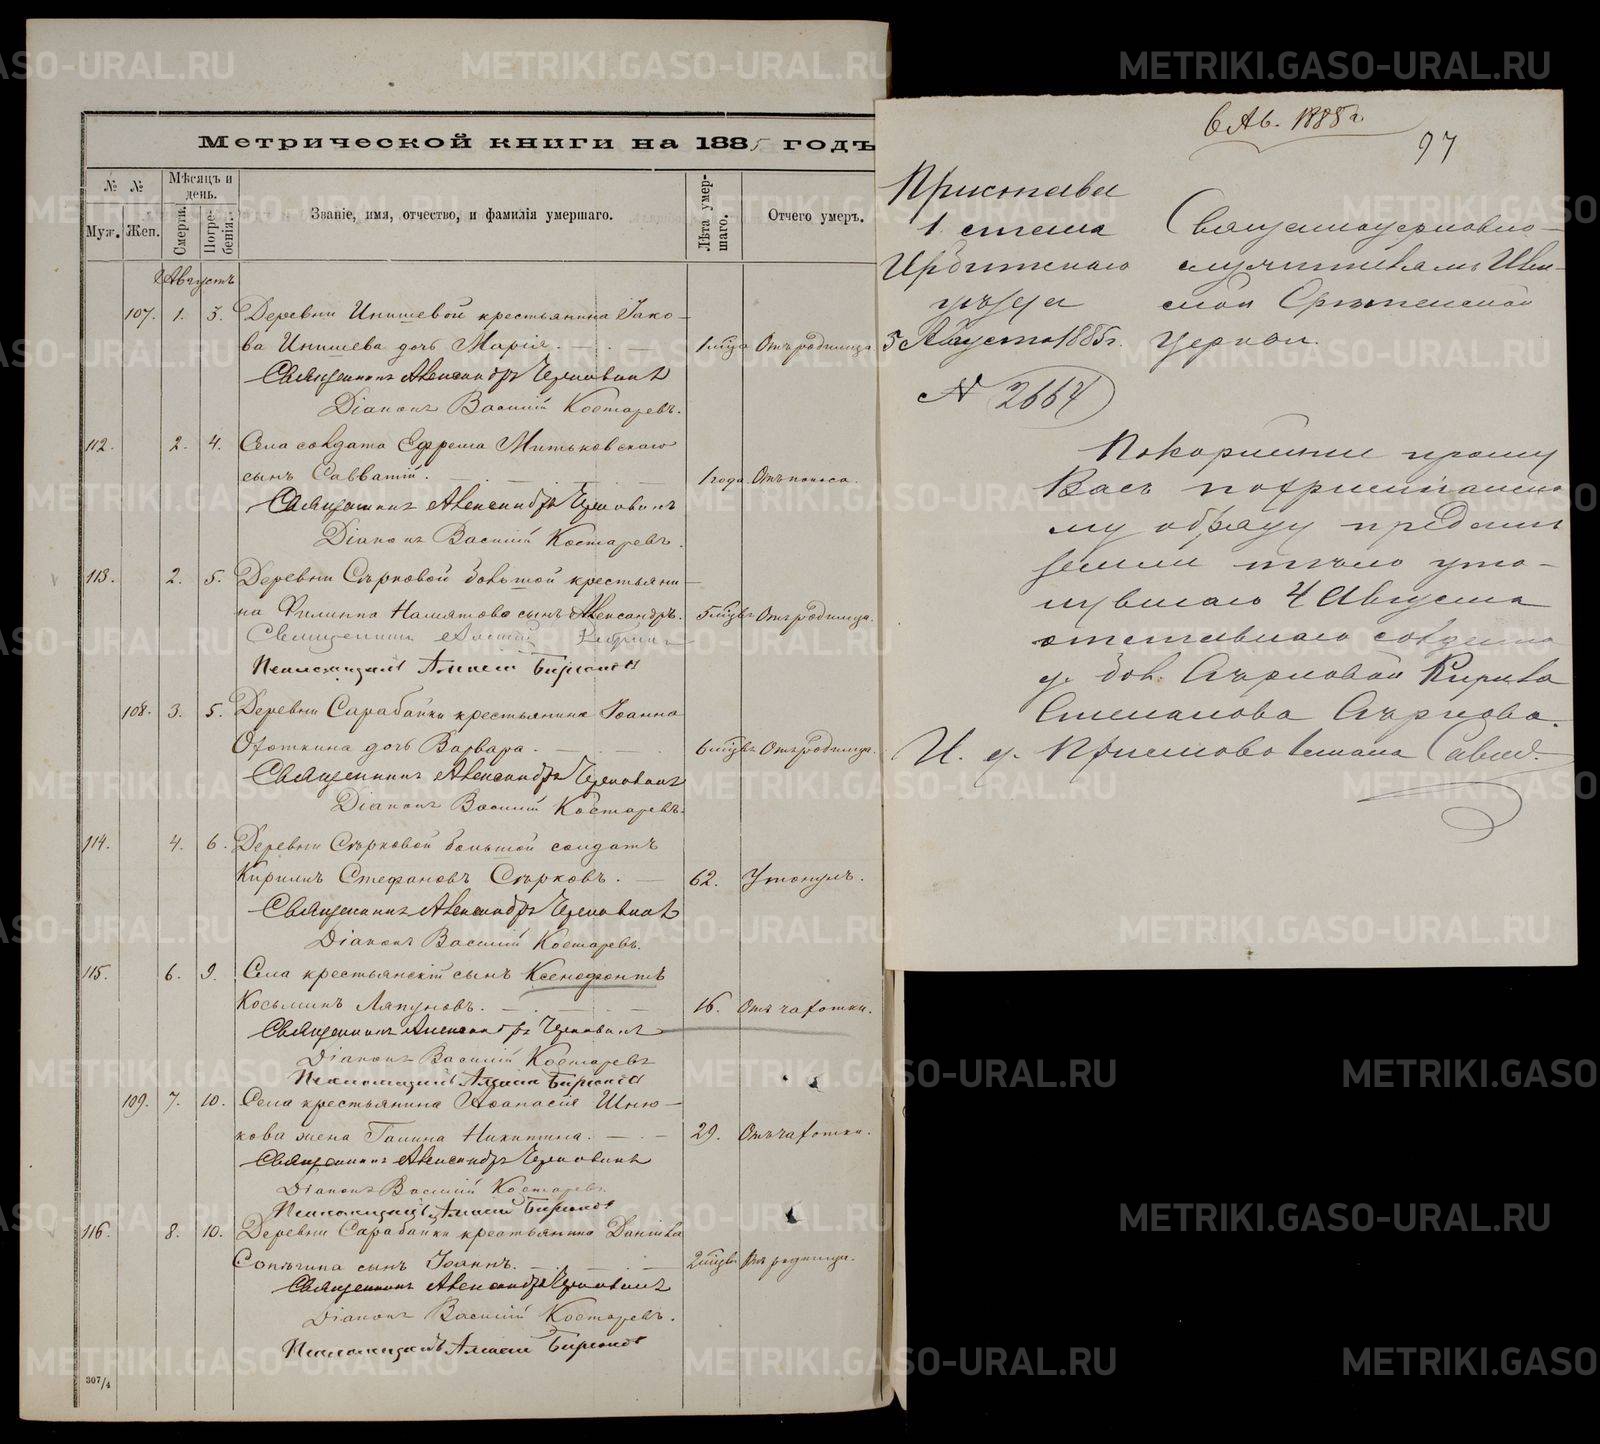 Метрической книги на 1885 годъ
№ №
Муж. Жен.
Мѣсяцъ и день.
Смерти.
Погребенія.
Званіе, имя, отчество, и фамилія умершаго.
Лѣта умершаго.
Отчего умеръ.
Августъ
107. 1. 3. Деревни Инишевой крестьянина Іако-
ва Инишева дочь Марія. 1 мѣсца Отъ родимца
Священникъ Александръ Черновинъ
Діаконъ Василій Костаревъ.
112. 2. 4. Села солдата Ефрема Митьковскаго
сынъ Савватій. 1 года. Отъ поноса.
Священникъ Александръ Черновинъ
Діаконъ Василій Костаревъ.
113. 2. 5. Деревни Сѣрковой большой крестьяни-
на Филиппа сынъ Александръ. 5 мѣсцъ Отъ родимца.
Священникъ
Псаломщикъ Алексій Бирюковъ
108. 3. 5. Деревни Сарабайки крестьянина Іоанна
Охоткина дочь Варвара. 6 мѣсцъ Отъ родимца.
Священникъ Александръ Черновинъ
Діаконъ Василій Костаревъ.
114. 4. 6. Деревни Сѣрковой большой солдатъ
Кириллъ Стефановъ Сѣрковъ. 62. Утонулъ.
Священникъ Александръ Черновинъ
Діаконъ Василій Костаревъ.
115. 6. 9. Села крестьянскій сынъ Ксенофонтъ
Косьминъ Ляпуновъ. 16. Отъ чахотки.
Священникъ Александръ Черновинъ
Діаконъ Василій Костаревъ
Псаломщикъ Алексій Бирюковъ
109. 7. 10. Села крестьянина Аѳанасія Шню-
кова жена Галина Никитина. 29. Отъ чахотки.
Священникъ Александръ Черновинъ
Діаконъ Василій Костаревъ.
Псаломщикъ Алексій Бирюковъ
116. 8. 10. Деревни Сарабайки крестьянина Даніила
Сопѣгина сынъ Іоаннъ. 2 мѣсцъ Отъ родимца.
Священникъ Александръ Черновинъ
Діаконъ Василій Костаревъ.
Псаломщикъ Алексій Бирюковъ
307/4
6 Ав. 1885 г.
97
Пристава
1 стана
Ирбитскаго
уѣзда
5 Августа 1885 г.
№ 2664
Священноцерковно-
служителямъ
Срѣтенской
церкви.
Покорнѣйше прошу
Васъ по христіанско
му обряду предать
землѣ тѣло уто-
нувшаго 4 Августа
отставнаго солдата
д. бол. Сѣрковой Кирила
Степанова Сѣркова.
И. д. Пристава 1 стана
METRIKI.GASO-URAL.RU